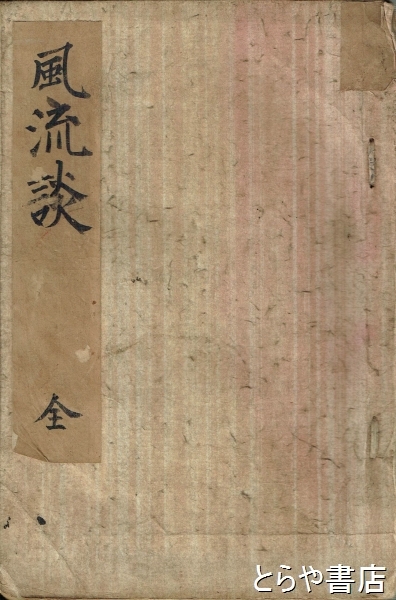 風流談
全
とらや書店